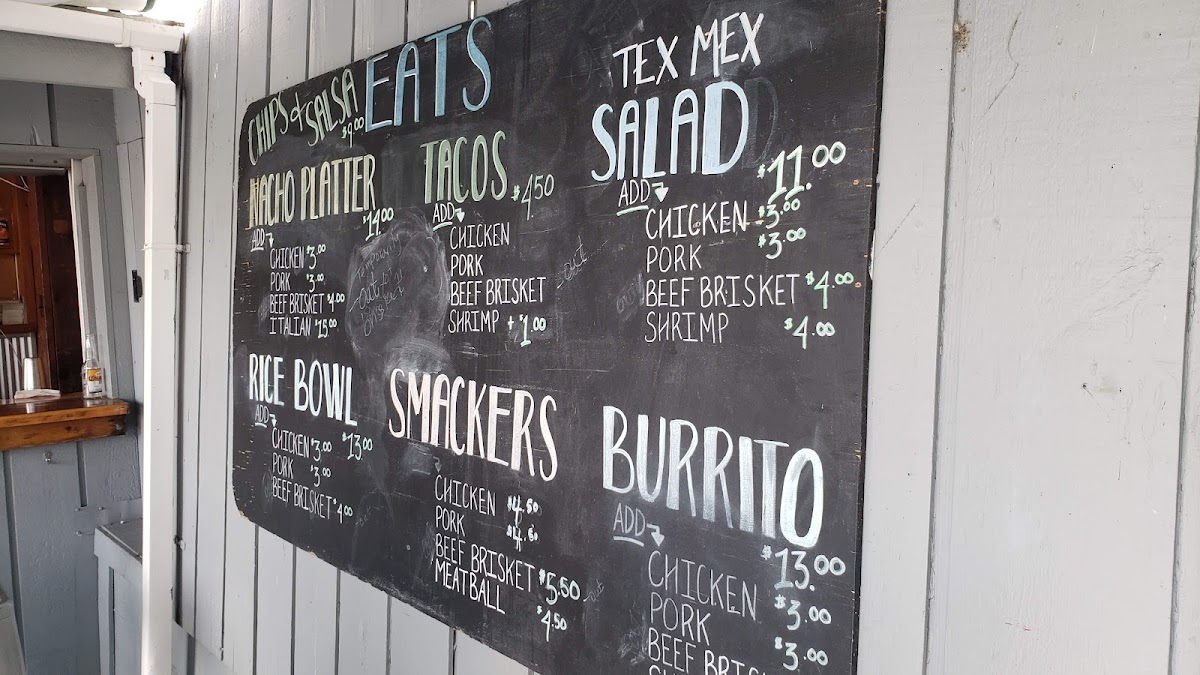 EATS
CHIPS & SALSA
$9.00
NACHO PLATTER
$14.00
ADD
CHICKEN $3.00
PORK $3.00
BEEF BRISKET $4.00
ITALIAN $15.00
TACOS $4.50
ADD
CHICKEN
PORK
BEEF BRISKET
SHRIMP + $1.00
TEX MEX
SALAD
$11.00
ADD
CHICKEN $3.00
PORK $3.00
BEEF BRISKET $4.00
SHRIMP $4.00
RICE BOWL
$13.00
ADD
CHICKEN $3.00
PORK $3.00
BEEF BRISKET $4.00
SMACKERS
CHICKEN $4.50
PORK $4.50
BEEF BRISKET $5.50
MEATBALL
$4.50
BURRITO
$13.00
ADD
CHICKEN $3.00
PORK $3.00
BEEF